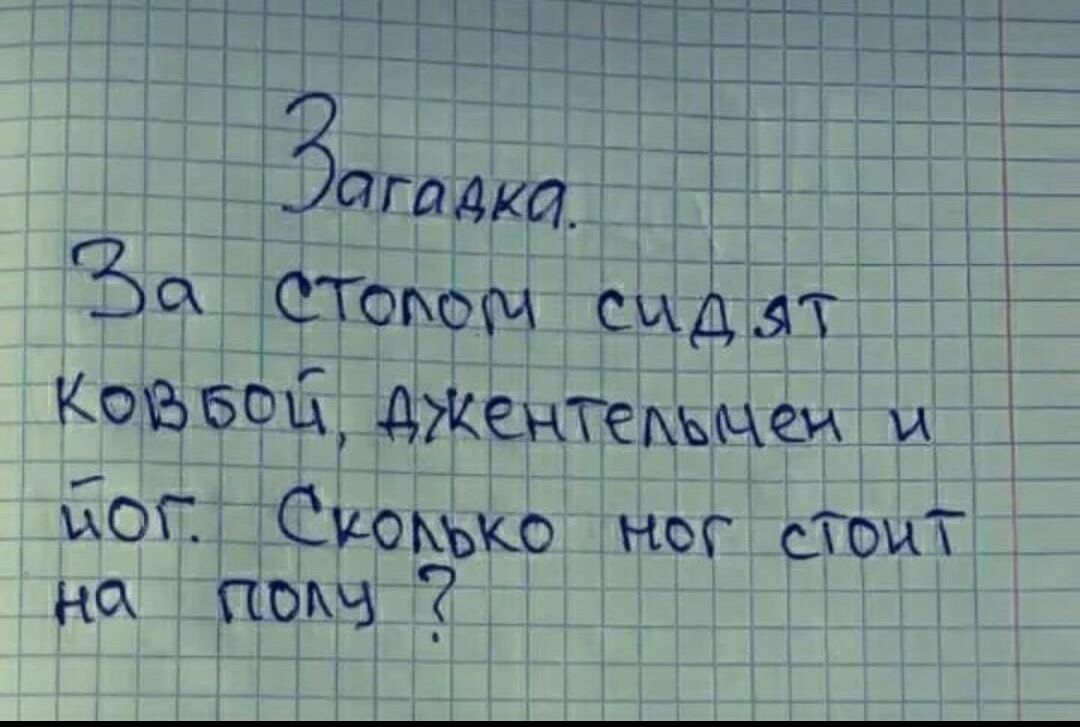 Загадка.
За столом сидят
ковбой, джентельмен и
йог. Сколько ног стоит
на полу?